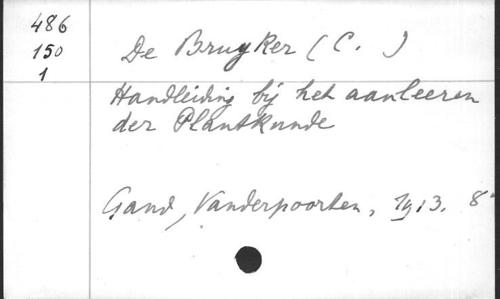 486
150
1
De Bruyker (C. )
Handleiding bij het aanleeren
der Plantkunde
Gand, Vanderpoorten, 1913. 8°